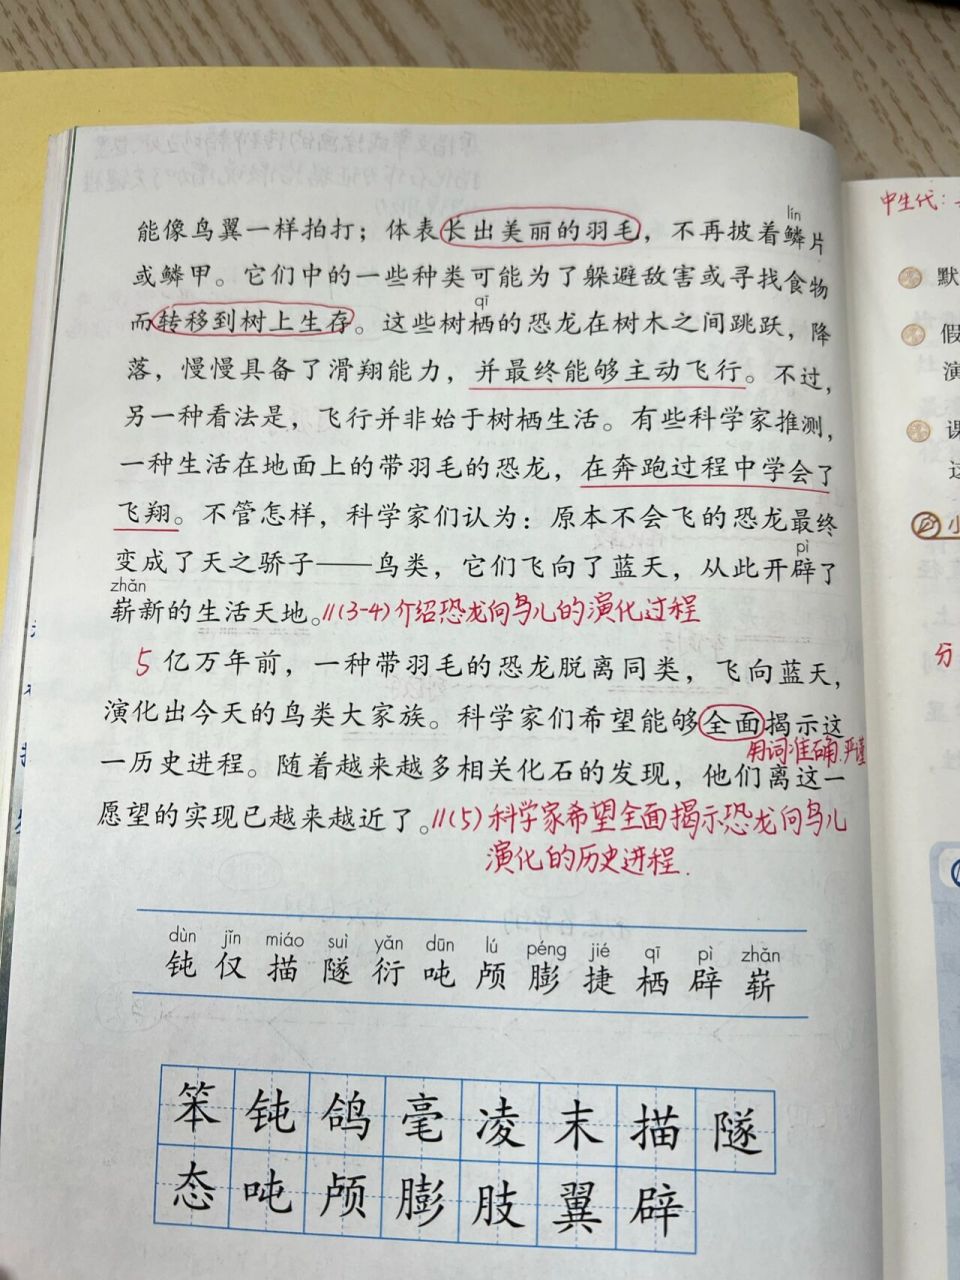 中生代：
lín
能像鸟翼一样拍打；体表长出美丽的羽毛，不再披着鳞片
或鳞甲。它们中的一些种类可能为了躲避敌害或寻找食物
qī
而转移到树上生存。这些树栖的恐龙在树木之间跳跃，降
落，慢慢具备了滑翔能力，并最终能够主动飞行。不过，
另一种看法是，飞行并非始于树栖生活。有些科学家推测，
一种生活在地面上的带羽毛的恐龙，在奔跑过程中学会了
飞翔。不管怎样，科学家们认为：原本不会飞的恐龙最终
pì
变成了天之骄子——鸟类，它们飞向了蓝天，从此开辟了
zhǎn
崭新的生活天地。//(3-4)介绍恐龙向鸟儿的演化过程
5 亿万年前，一种带羽毛的恐龙脱离同类，飞向蓝天，
演化出今天的鸟类大家族。科学家们希望能够全面揭示这
用词准确.严谨
一历史进程。随着越来越多相关化石的发现，他们离这一
愿望的实现已越来越近了。//(5)科学家希望全面揭示恐龙向鸟儿
演化的历史进程.
dùn jǐn miáo suì yǎn dūn lú péng jié qī pì zhǎn
钝 仅 描 隧 衍 吨 颅 膨 捷 栖 辟 崭
笨 钝 鸽 毫 凌 末 描 隧
态 吨 颅 膨 肢 翼 辟
默
假
演
课
这
小
分